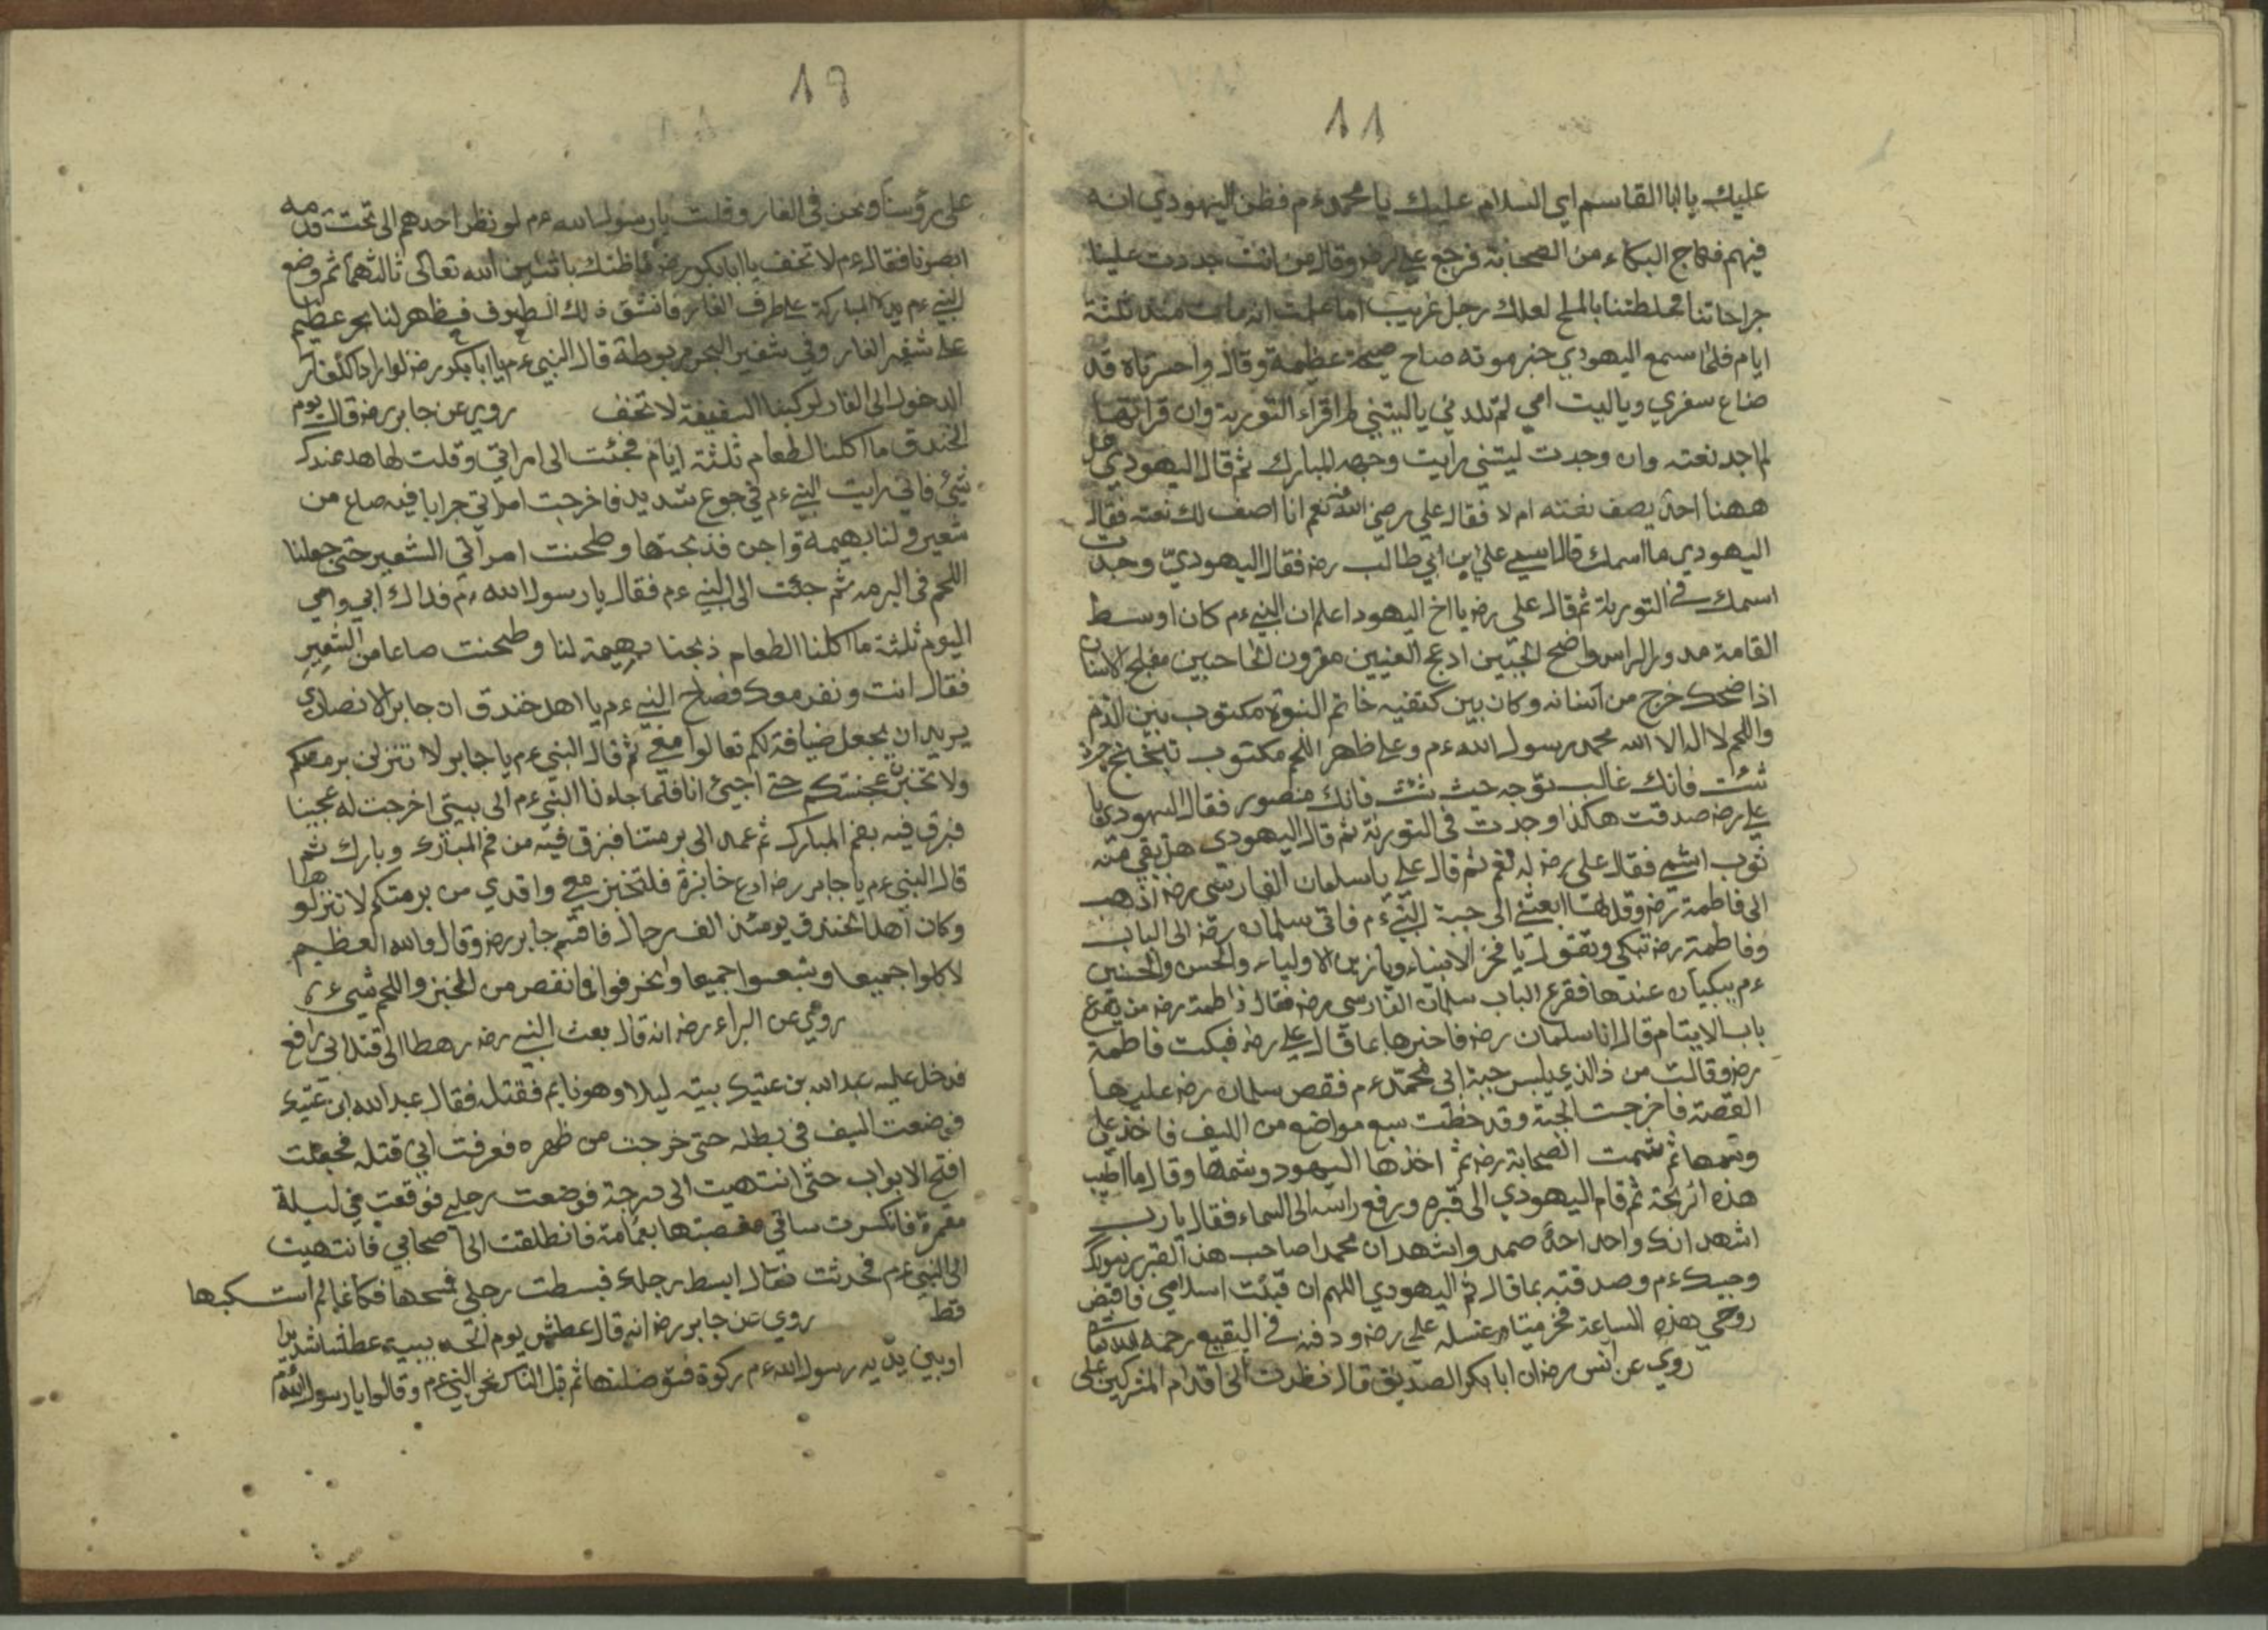 11
عليك يا ابا القاسم اي السلام عليك يا محمد ءم فظن اليهودي انه
فيهم فهاج البكاء من الصحابة فرجع علي رضه وقال من انت جددت علينا
جراحاتنا فخلطتنا بالملح لعلك رجل غريب اما علمت انه مات منذ ثلثة
ايام فلما سمع اليهودي خبر موته صاح صيحة عظيمة وقال واحسرتاه قد
ضاع سفري وياليت امي لم تلدني ياليتني لم اقراء التورية وان قراتها
لم اجد نعته وان وجدت ليتني رايت وجهه المبارك ثم قال اليهودي هل
ههنا احد يصف نعته ام لا فقال علي رضي الله عنه نعم انا اصف لك نعته فقال
اليهودي ما اسمك قال اسمي علي ابن ابي طالب رضه فقال اليهودي وجدت
اسمك في التورية ثم قال علي رضه يا اخ اليهود اعلم ان النبي ءم كان اوسط
القامة مدور الراس واضح الجبين ادعج العينين مقرون الحاجبين مفلج الاسنان
اذا ضحك خرج من اسنانه وكان بين كتفيه خاتم النبوة مكتوب بين الدم
واللحم لا اله الا الله محمد رسول الله ءم وعلي ظهر اللحم مكتوب
شئت فانك غالب توجه حيث شئت فانك منصور فقال اليهودي يا
علي رضه صدقت هكذا وجدت في التورية ثم قال اليهودي هل بقي منه
ثوب اشم فقال علي رضه له نعم ثم قال علي يا سلمان الفارسي رضه اذهب
الى فاطمة رضه وقل لها ابعثي الى جبة النبي ءم فاتى سلمان رضه الى الباب
وفاطمة رضه تبكي وتقول يا فخر الانبياء ويا زين الاولياء والحسن والحسين
ءم يبكيان عندها فقرع الباب سلمان الفارسي رضه فقال فاطمة رضه من يقرع
باب الايتام قال انا سلمان رضه فاخبرها بما قال علي رضه فبكت فاطمة
رضه وقالت من ذالذي يلبس جبة ابي محمد ءم فقص سلمان رضه عليها
القصة فاخرجت الجبة وقد خطت سبع مواضع من الليف فاخذ علي
وشمها ثم شمت الصحابة رضه ثم اخذها اليهود وشمها وقال ما اطيب
هذه الريحة ثم قام اليهودي الى قبره ورفع راسه الى السماء فقال يا رب
اشهد انك واحد احد صمد واشهد ان محمدا صاحب هذا القبر رسولك
وحبيبك ءم وصدقته بما قال ثم اليهودي اللهم ان قبلت اسلامي فاقبض
روحي هذه الساعة فخر ميتا وغسله علي رضه ودفنه في البقيع رحمه الله
روي عن انس رضه ان ابا بكر الصديق قال نظرت الى اقدام المشركين على
19
على رؤسنا ونحن في الغار وقلت يا رسول الله ءم لو نظر احدهم الى تحت قدمه
ابصرنا فقال ءم لا تخف يا ابا بكر رضه ما ظنك باثنين الله تعالى ثالثهما ثم وضع
النبي ءم يده المباركة علي طرف الغار فانشق ذلك الطرف فظهر لنا بحر عظيم
على شفير الغار وفي شفير البحر مربوطة قال النبي ءم يا ابا بكر رضه لو اراد الكفار
الدخول الى الغار لركبنا السفينة لا تخف روي عن جابر رضه قال يوم
الخندق ما اكلنا الطعام ثلثة ايام فجئت الى امراتي وقلت لها هل عندك
شئ فاني رايت النبي ءم في جوع شديد فاخرجت امراتي جرابا فيه صاع من
شعير ولنا بهيمة تواجن فذبحتها وطحنت امراتي الشعير حتى جعلنا
اللحم في البرمه ثم جئت الى النبي ءم فقال يا رسول الله ءم فداك ابي وامي
اليوم ثلثة ما اكلنا الطعام ذبحنا بهيمة لنا وطحنت صاعا من الشعير
فقال انت ونفر معك فصاح النبي ءم يا اهل خندق ان جابر الانصاري
يريد ان يجعل ضيافة لكم تعالوا معي ثم قال النبي ءم يا جابر لا تنزلن برمتكم
ولا تخبزن عجنتكم حتى اجيئ انا فلما جاءنا النبي ءم الى بيتي اخرجت له عجينا
فبزق فيه بفم المبارك ثم عمد الى برمتنا فبزق فيه من فم المبارك وبارك ثم
قال النبي ءم يا جابر رضه ادع خابزة فلتخبز معي واقدي من برمتكم لا تنزلوها
وكان اهل الخندق يومئذ الف رجال فاقسم جابر رضه وقال والله العظيم
لاكلوا جميعا وشبعوا جميعا وانحرفوا وما نقص من الخبز واللحم شيء
روي عن البراء رضه انه قال بعث النبي رضه رهطا الى قتل ابي رافع
فدخل عليه عبد الله بن عتيك بيته ليلا وهو نايم فقتله فقال عبد الله ابن عتيك
فوضعت السيف في بطنه حتى خرجت من ظهره فعرفت اني قتله فجعلت
افتح الابواب حتى انتهيت الى درجة فوضعت رجلي فوقعت في ليلة
مقمرة فانكسرت ساقي فعصبتها بعمامة فانطلقت الى اصحابي فانتهيت
الى النبي ءم فحدثت فقال ابسط رجلك فبسطت رجلي فمسحها فكانما لم اشتكها
قط روي عن جابر رضه انه قال عطش يوم الحديبية عطشا شديدا
او بين يديه رسول الله ءم ركوة فتوضا منها ثم قبل الناس نحو النبي ءم وقالوا يا رسول الله ءم